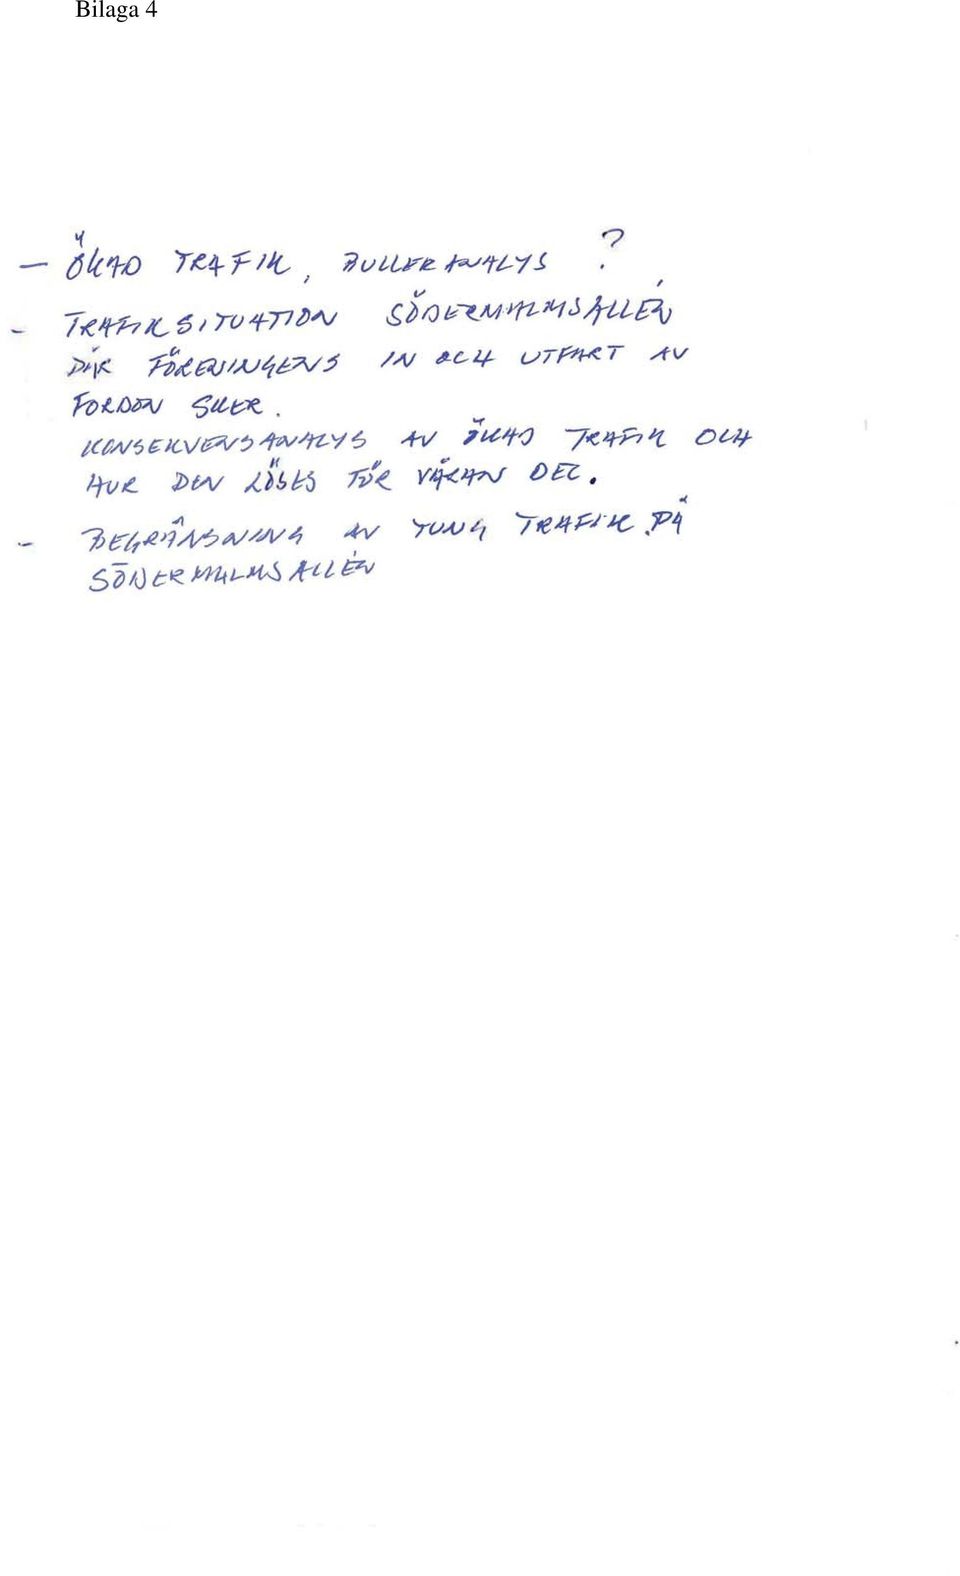 Bilaga 4
– ÖKAD TRAFIK, BULLERANALYS ?
- TRAFIKSITUATION SÖDERMALMSALLÉN
DÄR FÖRENINGENS IN OCH UTFART AV
FORDON SKER.
KONSEKVENSANALYS AV ÖKAD TRAFIK OCH
HUR DEN LÖSES FÖR VÅRAN DEL.
- BEGRÄNSNING AV TUNG TRAFIK PÅ
SÖDERMALMSALLÉN